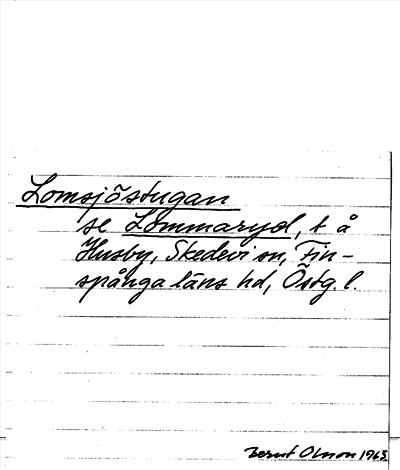 Lomsjöstugan
se Lommaryd, t å
Husby, Skedevi sn, Fin-
spånga läns hd, Östg. l.
Bernt Olsson 1963